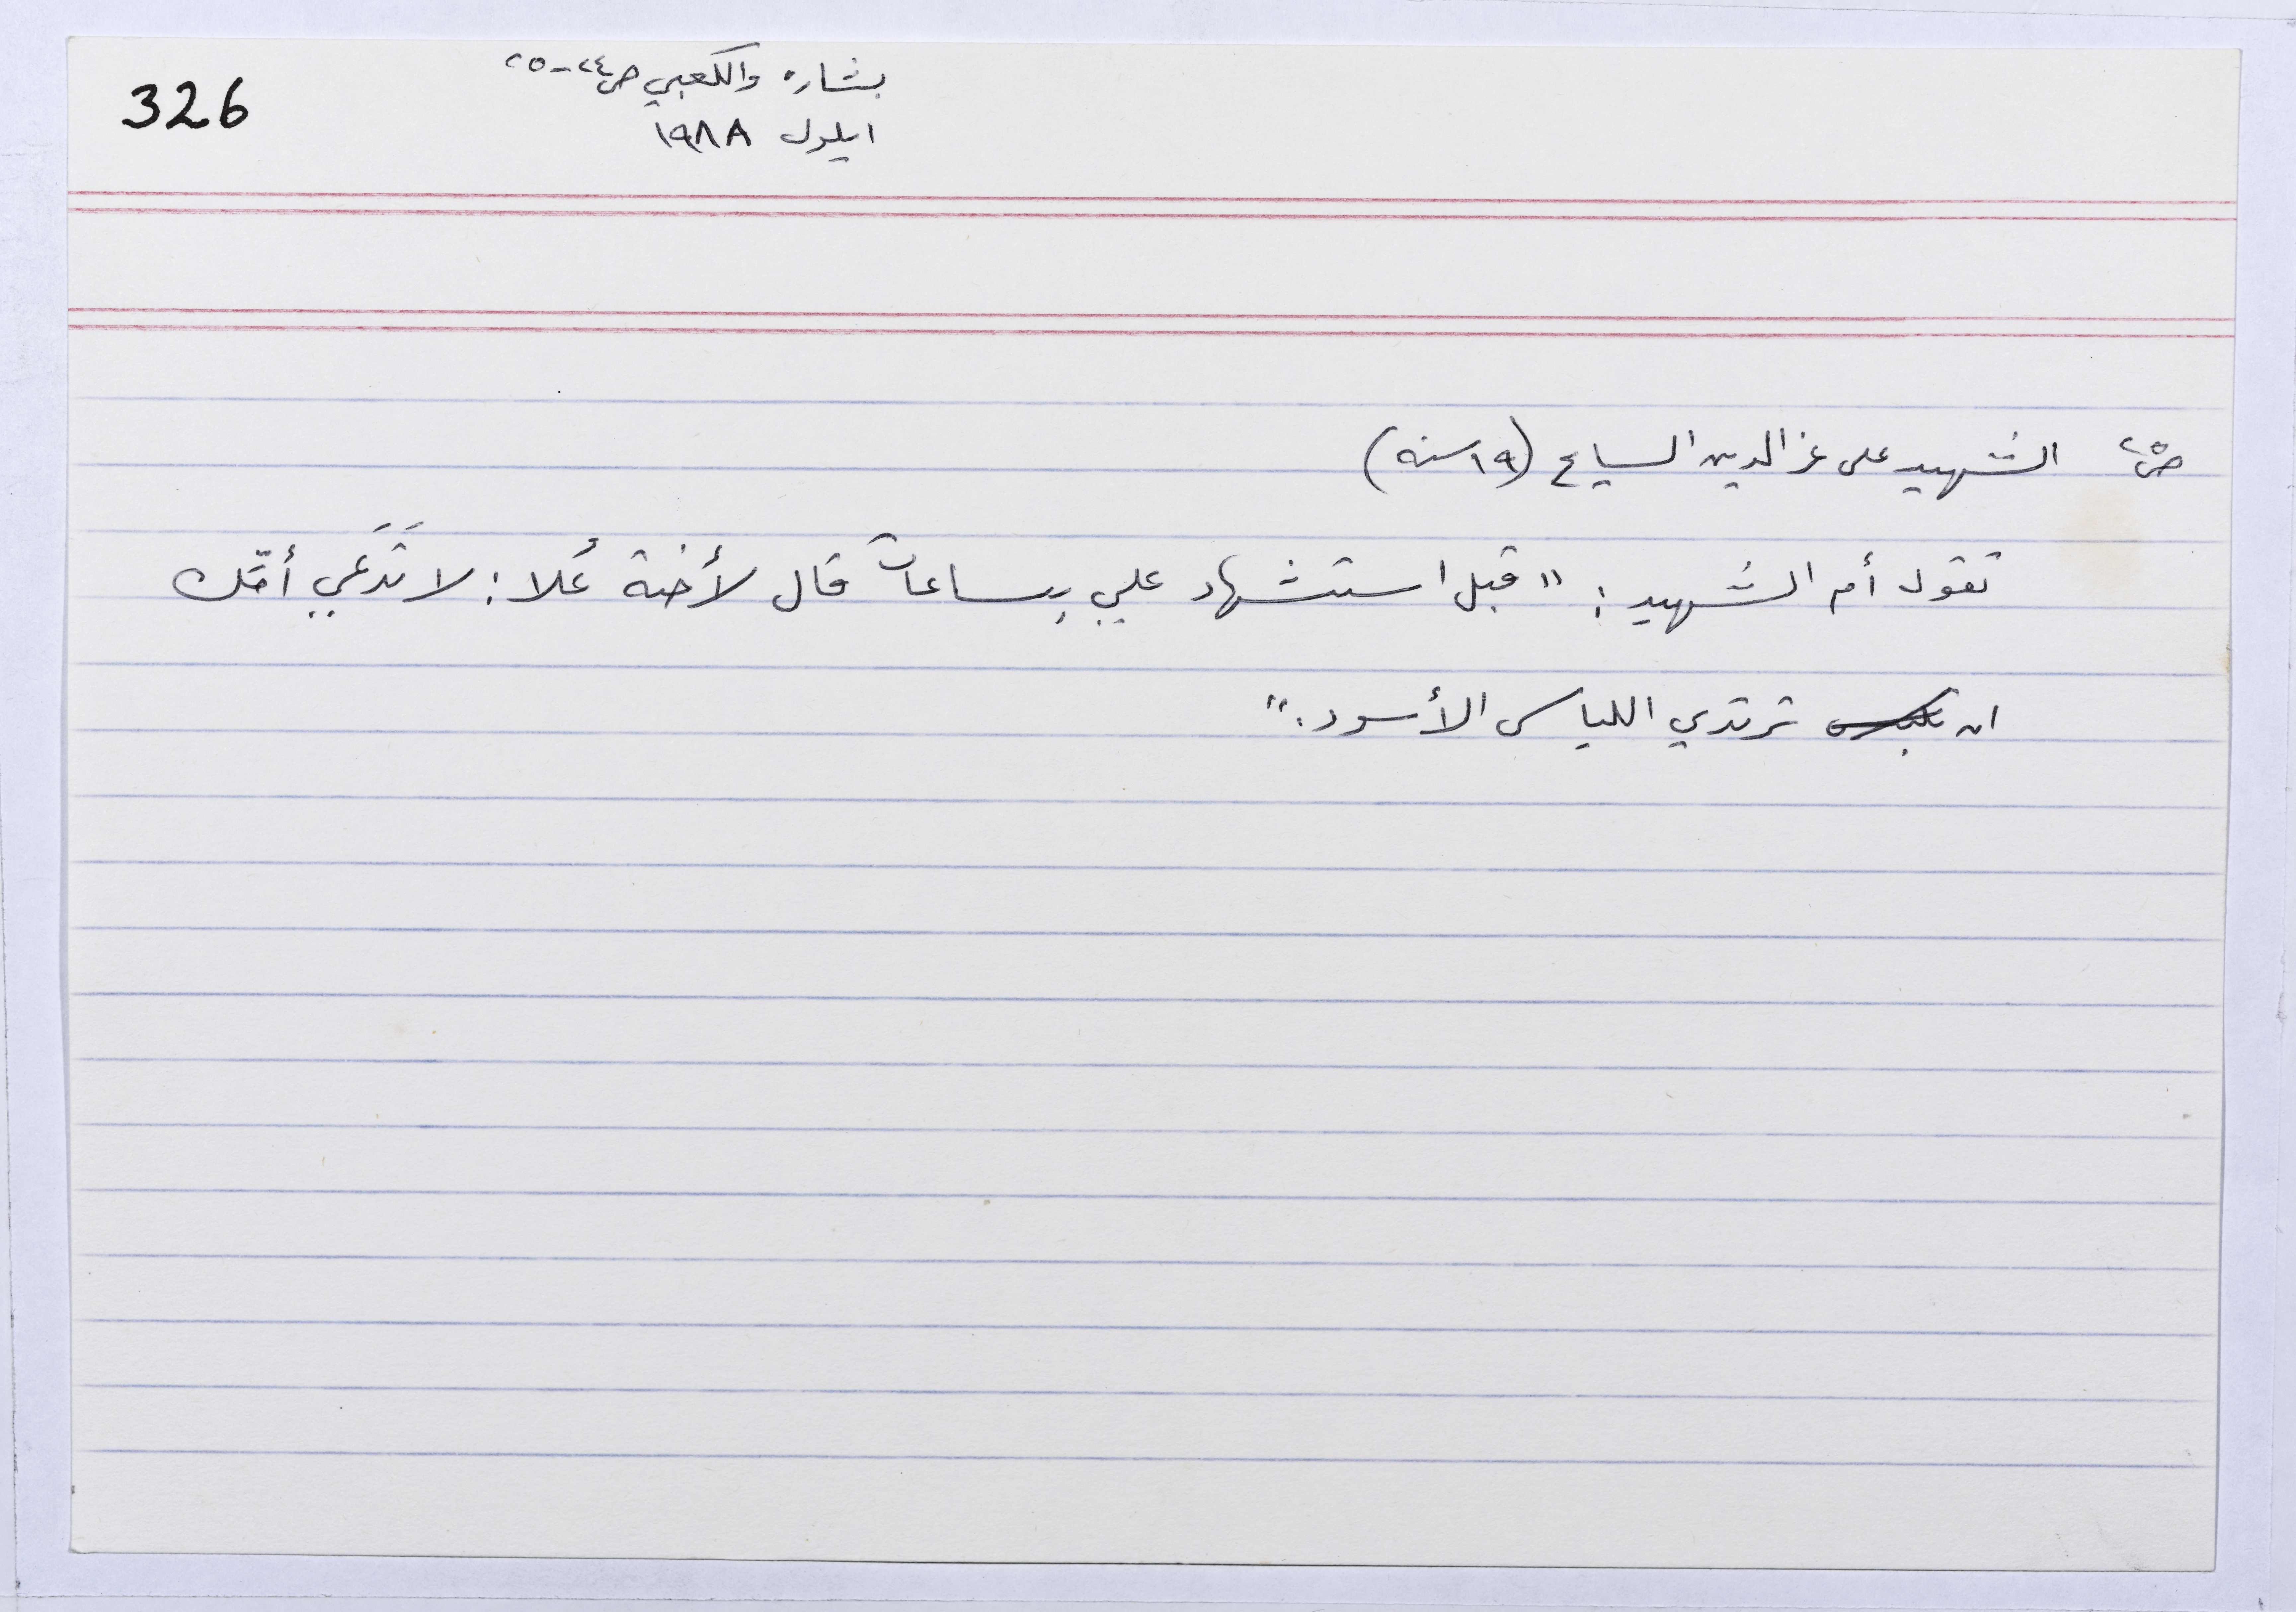 326
بشاره والكعبي ص٢٤-٢٥
ايلول ١٩٨٨
ص٢٥ الشهيد على عز الدين السايح (١٩ سنه)
تقول أم الشهيد: "قبل استشهاد علي بساعات قال لأخته عُلا: لا تَدَعي أمّك
ان تلبس ترتدي اللباس الأسود."